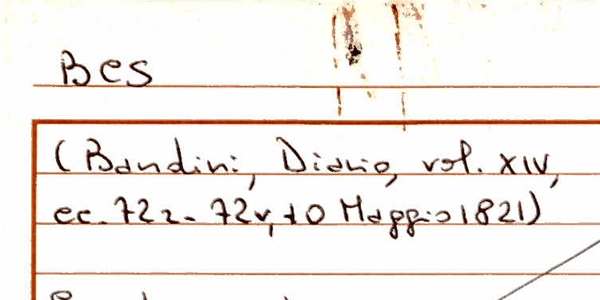 Bes
(Bandini, Diario, vol. XIV,
cc. 72r - 72v, 10 Maggio 1821)